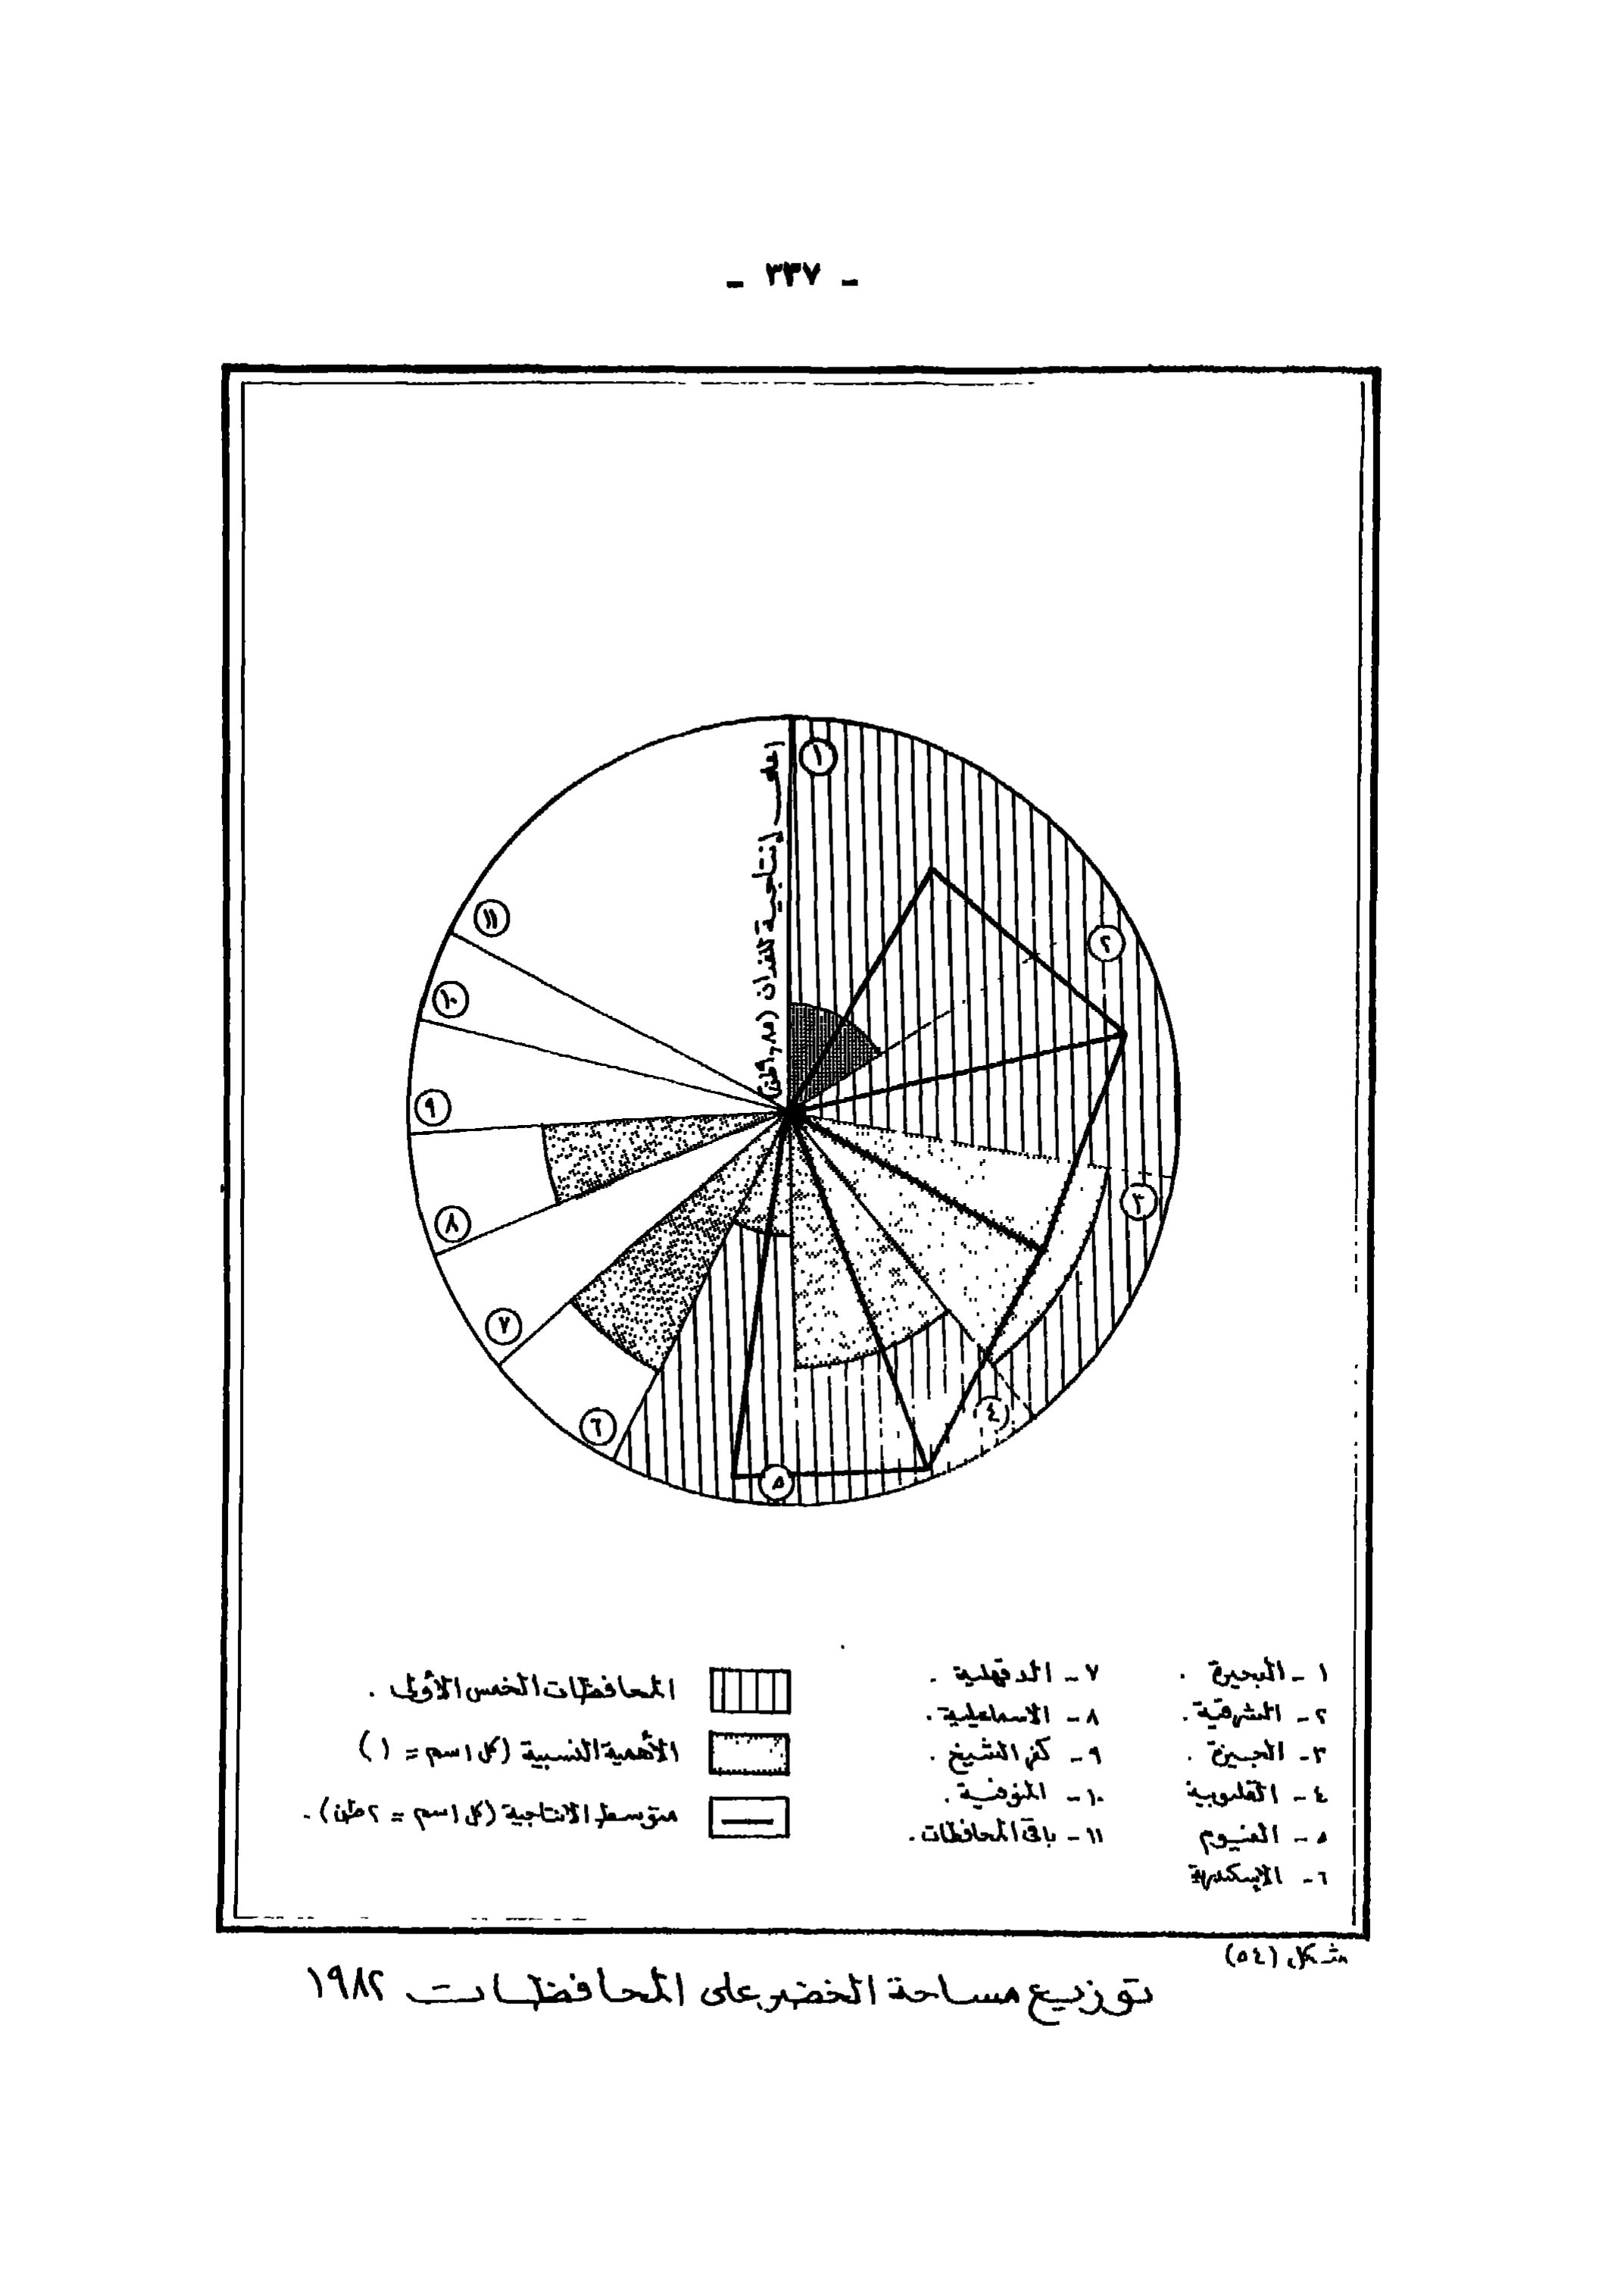 ـ ٣٣٧ ـ
اعلى إنتاجية للفدان (٩٫٨٥ طن)
١
٢
٣
٤
٥
٦
٧
٨
٩
١٠
١١
١ - البحيرة .
٢ - الشرقية .
٣ - الجيزة .
٤ - القليوبية
٥ - الفيوم
٦ - الاسكندرية
٧ - الدقهلية .
٨ - الاسماعيلية .
٩ - كفر الشيخ .
١٠ - المنوفية .
١١ - باقى المحافظات .
المحافظات الخمس الأولى .
الأهمية النسبية (كل ١ سم = ١)
متوسط الانتاجية (كل ١ سم = ٢ طن) .
شكل (٥٤)
توزيع مساحة الخضر على المحافظات ١٩٨٢